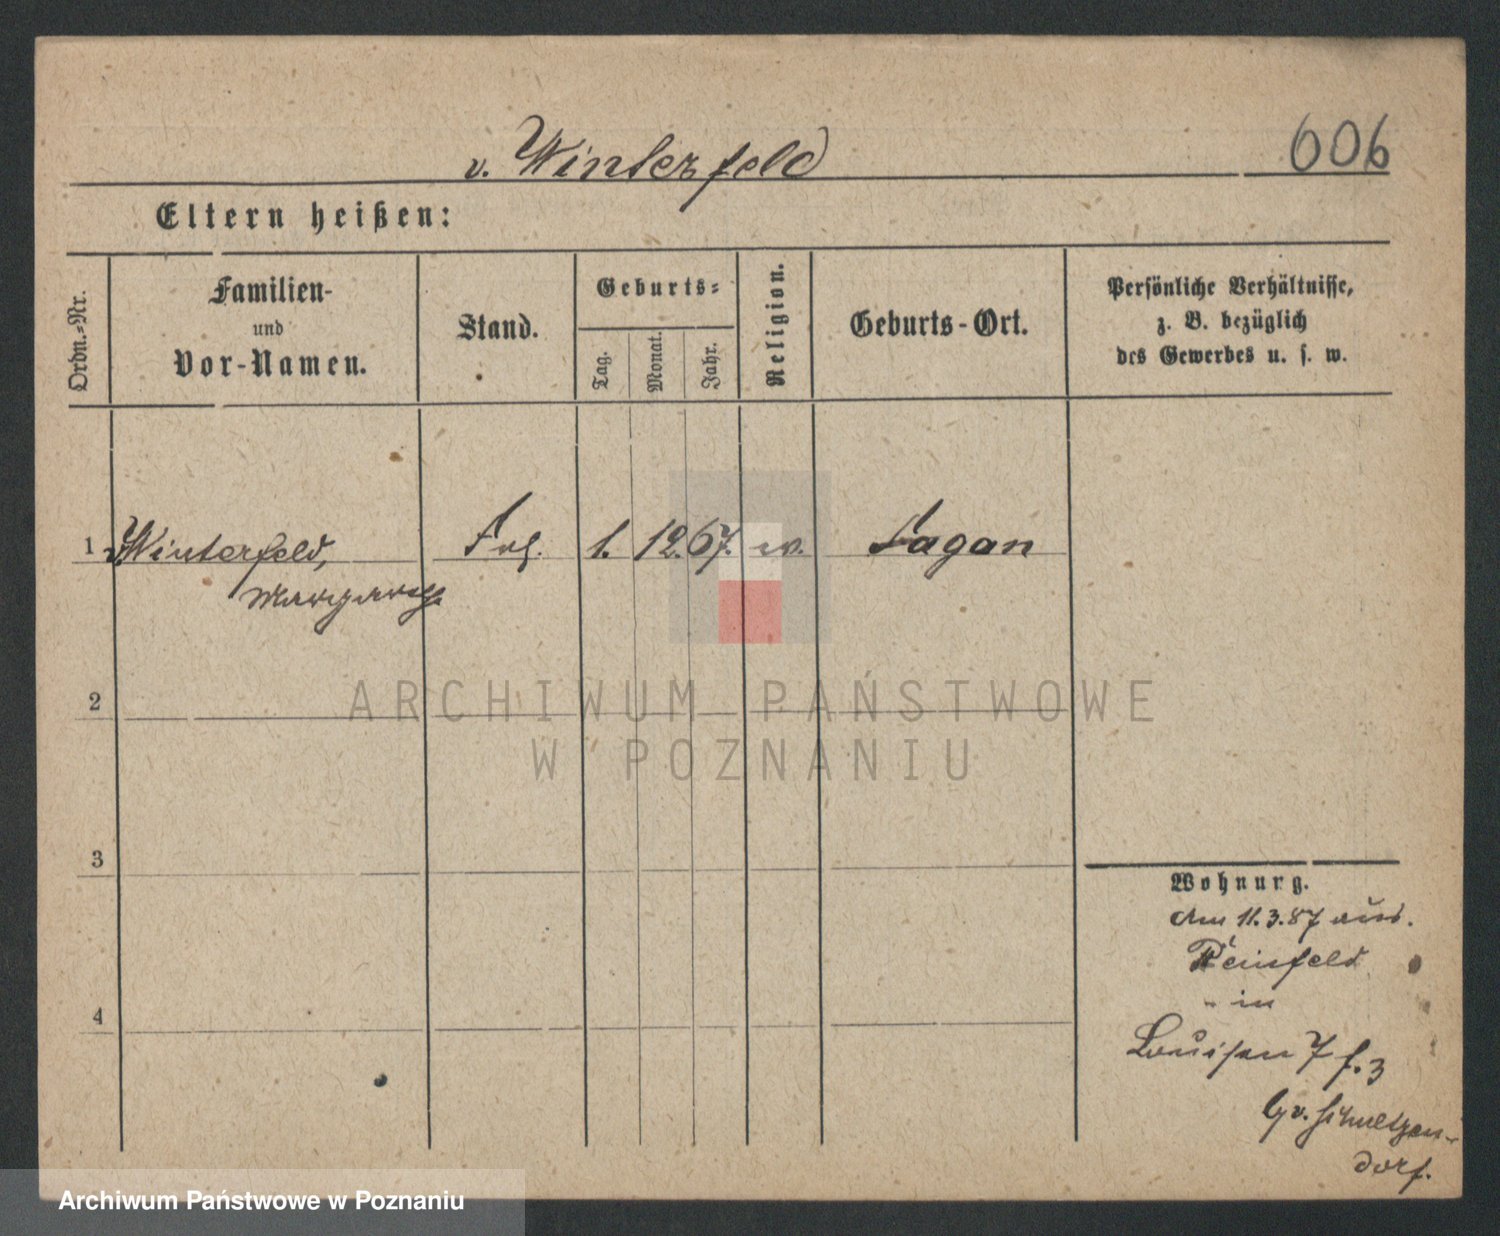 v. Winterfeld 606
Eltern heißen:
Ordn.=Nr.
Familien-
und
Vor-Namen.
Stand.
Geburts=
Tag.
Monat.
Jahr.
Religion.
Geburts-Ort.
Persönliche Verhältnisse,
z. B. bezüglich
des Gewerbes u. s. w.
1 v. Winterfeld, Frl. 1. 12. 67. ev. Sagan
Margarethe
2
ARCHIWUM PAŃSTWOWE
W POZNANIU
3
4
Wohnung.
Am 11.3.87 aus.
Reinfeld
" in
Louisen 7 f. 3
b/ v. Schmeltzen-
dorf.
Archiwum Państwowe w Poznaniu